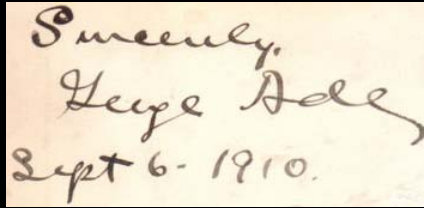 Sincerely,
George Ade
Sept 6 - 1910.